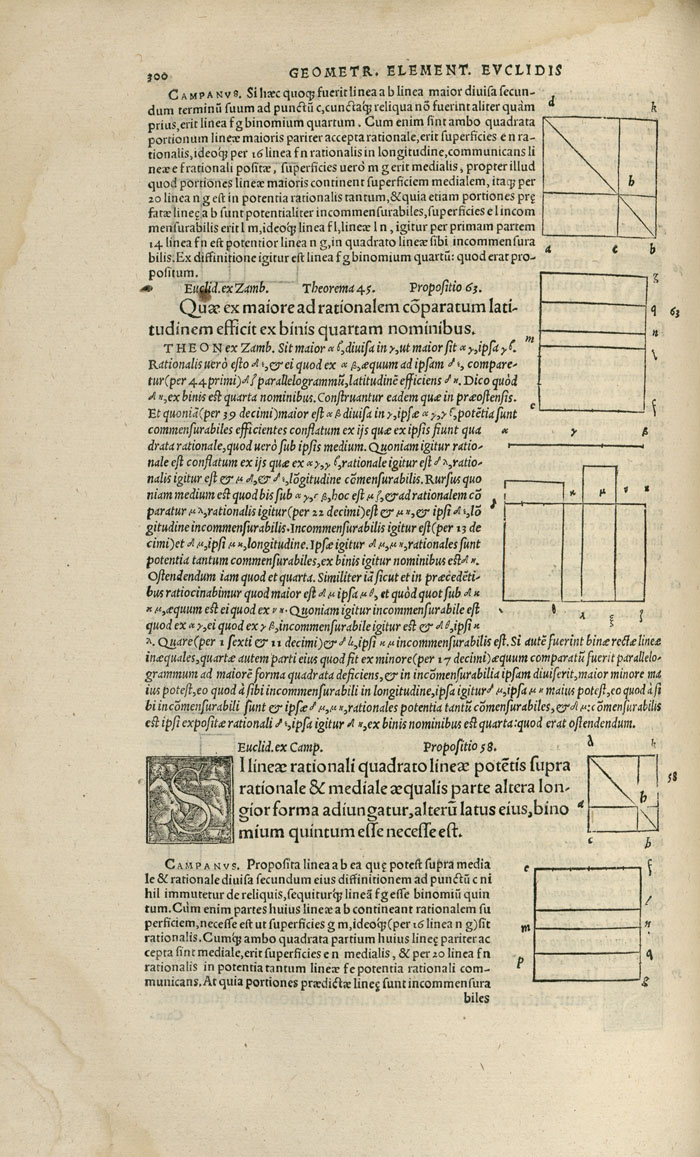 300
GEOMETR. ELEMENT. EVCLIDIS
CAMPANVS. Si hæc quoq; fuerit linea a b linea maior diuisa secun-
dum terminũ suum ad punctũ c, cunctaq; reliqua nõ fuerint aliter quàm
prius, erit linea f g binomium quartum. Cum enim sint ambo quadrata
portionum lineæ maioris pariter accepta rationale, erit superficies e n ra-
tionalis, ideoq; per 16 linea f n rationalis in longitudine, communicans li
neæ e f rationali positæ, superficies uerò m g erit medialis, propter illud
quod portiones lineæ maioris continent superficiem medialem, itaq; per
20 linea n g est in potentia rationalis tantum, & quia etiam portiones prę
fatæ lineę a b sunt potentialiter incommensurabiles, superficies e l incom
mensurabilis erit l m, ideoq; linea f l, lineæ l n, igitur per primam partem
14 linea f n est potentior linea n g, in quadrato lineæ sibi incommensura
bilis. Ex diffinitione igitur est linea f g binomium quartũ: quod erat pro-
positum.
Euclid. ex Zamb. Theorema 45. Propositio 63.
Quæ ex maiore ad rationalem cõparatum lati-
tudinem efficit ex binis quartam nominibus.
THEON ex Zamb. Sit maior α β, diuisa in γ, ut maior sit α γ, ipsa γ β.
Rationalis uerò esto δ ε, & ei quod ex α β, æquum ad ipsam δ ε, compare-
tur (per 44 primi) δ ζ parallelogrammũ, latitudinẽ efficiens δ η. Dico quòd
δ η, ex binis est quarta nominibus. Construantur eadem quæ in præostensis.
Et quoniã (per 39 decimi) maior est α β diuisa in γ, ipsæ α γ, γ β, potẽtia sunt
commensurabiles efficientes conflatum ex ijs quæ ex ipsis fiunt qua
drata rationale, quod uerò sub ipsis medium. Quoniam igitur ratio-
nale est conflatum ex ijs quæ ex α γ, γ β, rationale igitur est δ λ, ratio-
nalis igitur est & δ μ, & δ ε, lõgitudine cõmensurabilis. Rursus quo
niam medium est quod bis sub α γ, γ β, hoc est μ ζ, & ad rationalem cõ
paratur μ λ, rationalis igitur (per 22 decimi) est & μ η, & ipsi δ ε, lõ
gitudine incommensurabilis. Incommensurabilis igitur est (per 13 de
cimi) et δ μ, ipsi μ η, longitudine. Ipsæ igitur δ μ, μ η, rationales sunt
potentia tantum commensurabiles, ex binis igitur nominibus est δ η.
Ostendendum iam quod et quarta. Similiter iã sicut et in præcedẽti-
bus ratiocinabimur quod maior est δ μ ipsa μ η, et quòd quot sub δ κ
κ μ, æquum est ei quod ex ν μ. Quoniam igitur incommensurabile est
quod ex α γ, ei quod ex γ β, incommensurabile igitur est & δ θ, ipsi κ
λ. Quare (per 1 sexti & 11 decimi) & δ κ, ipsi κ μ incommensurabilis est. Si autẽ fuerint binæ rectæ lineæ
inæquales, quartæ autem parti eius quod fit ex minore (per 17 decimi) æquum comparatũ fuerit parallelo-
grammum ad maiorẽ forma quadrata deficiens, & in incõmensurabilia ipsam diuiserit, maior minore ma
ius potest, eo quod à sibi incommensurabili in longitudine, ipsa igitur δ μ, ipsa μ η maius potest, eo quod à si
bi incõmensurabili sunt & ipsæ δ μ, μ η, rationales potentia tantũ cõmensurabiles, & δ μ: cõmensurabilis
est ipsi expositæ rationali δ ε, ipsa igitur δ η, ex binis nominibus est quarta: quod erat ostendendum.
Euclid. ex Camp. Propositio 58.
SI lineæ rationali quadrato lineæ potẽtis supra
rationale & mediale æqualis parte altera lon-
gior forma adiungatur, alterũ latus eius, bino
mium quintum esse necesse est.
CAMPANVS. Proposita linea a b ea quę potest supra media
le & rationale diuisa secundum eius diffinitionem ad punctũ c ni
hil immutetur de reliquis, sequiturq; lineã f g esse binomiũ quin
tum. Cùm enim partes huius lineæ a b contineant rationalem su
perficiem, necesse est ut superficies g m, ideoq; (per 16 linea n g) sit
rationalis. Cumq; ambo quadrata partium huius lineę pariter ac
cepta sint mediale, erit superficies e n medialis, & per 20 linea f n
rationalis in potentia tantum lineæ f e potentia rationali com-
municans. At quia portiones prædictæ lineę sunt incommensura
biles
d
k
b
a
c
b
g
q
63
n
m
l
e
f
α
γ
β
d
h
58
b
a
c
b
e
f
l
m
n
q
p
g